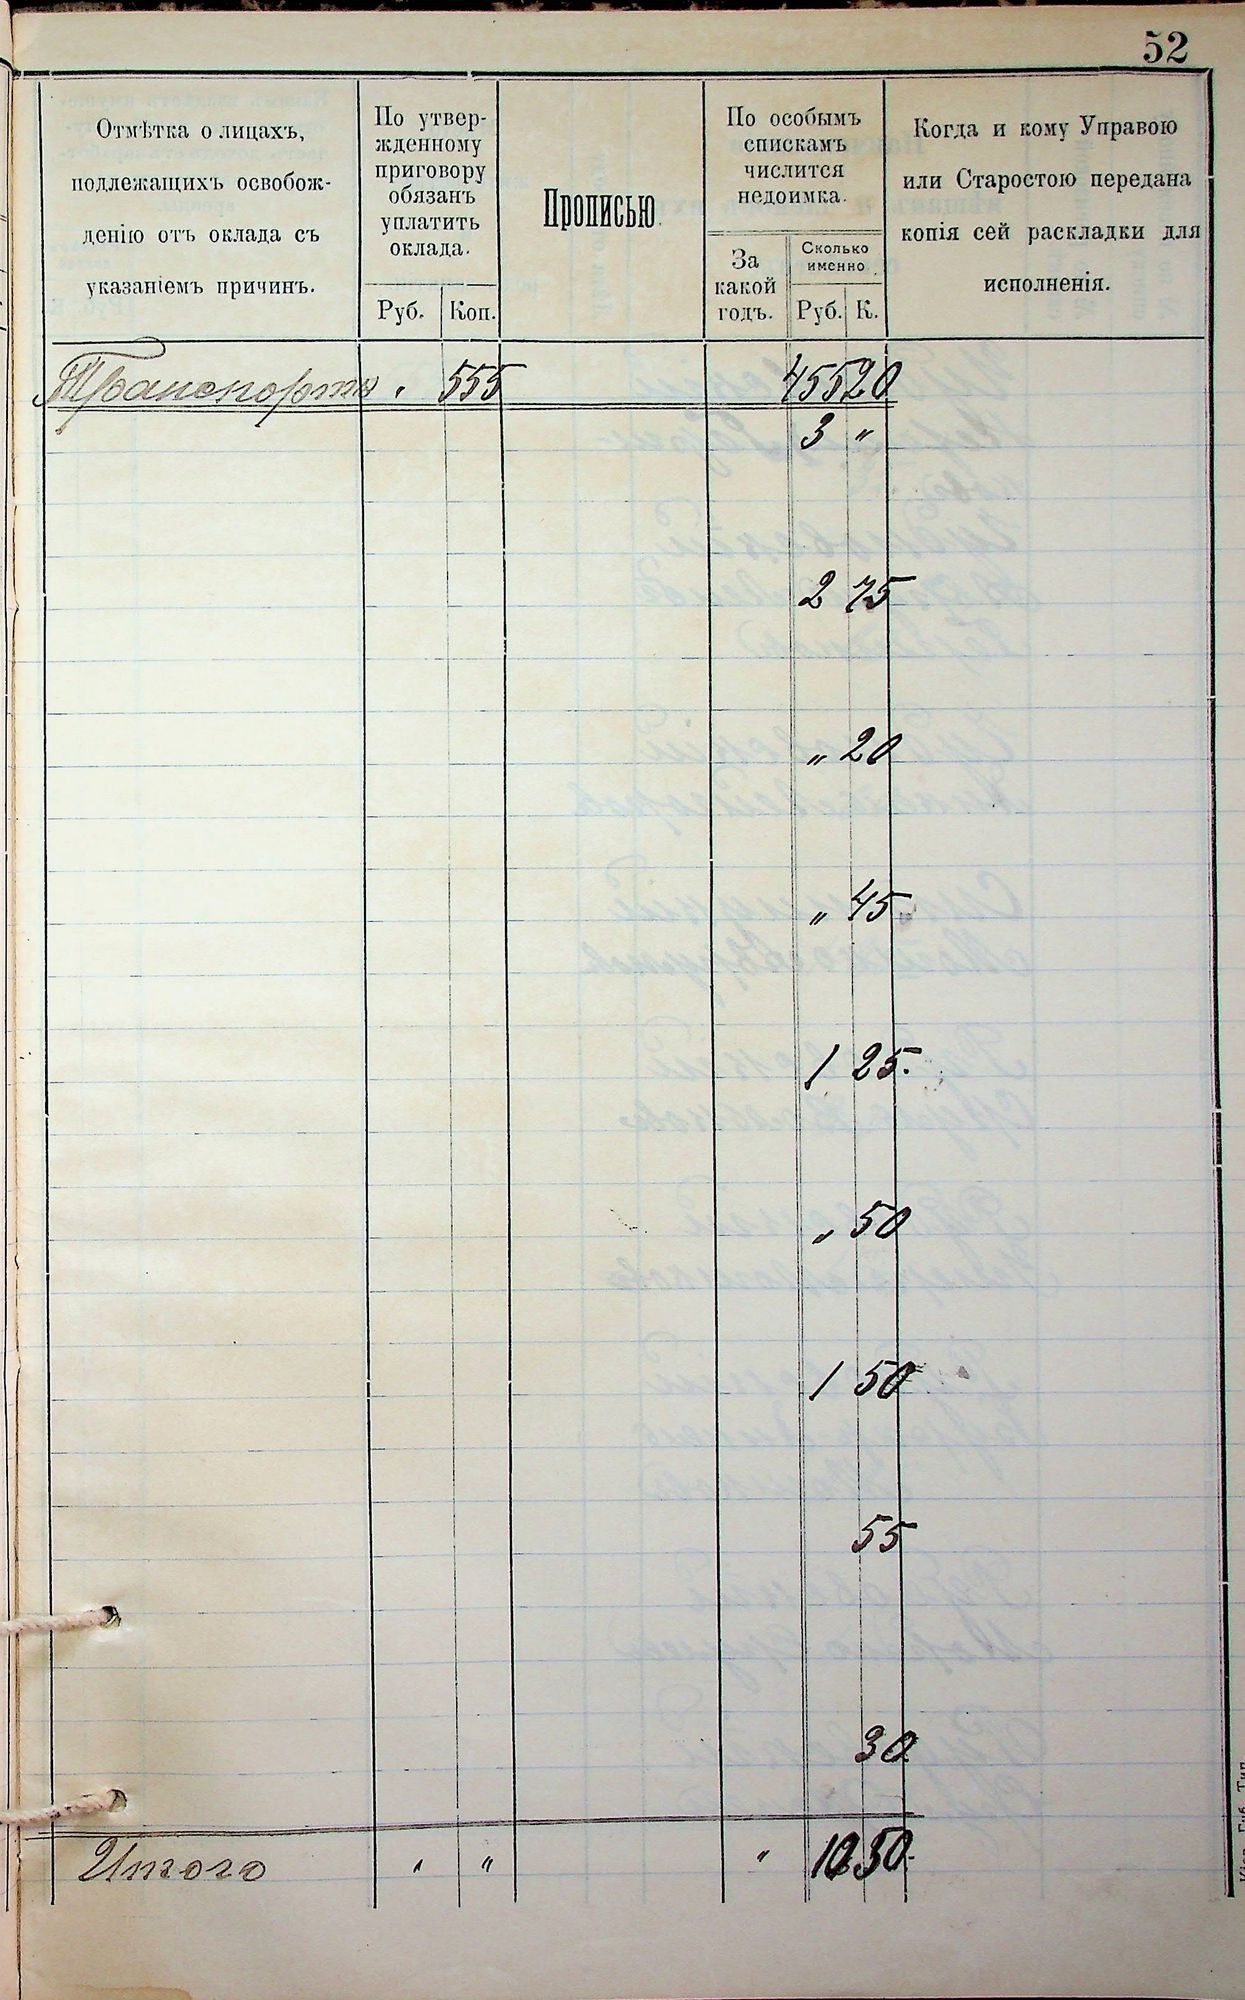 52
Отмѣтка о лицахъ,
подлежащихъ освобож-
денію отъ оклада съ
указаніемъ причинъ.
По утвер-
жденному
приговору
обязанъ
уплатить
оклада.
Руб. Коп.
Прописью.
По особымъ
спискамъ
числится
недоимка.
За
какой
годъ.
Сколько
именно.
Руб. К.
Когда и кому Управою
или Старостою передана
копія сей раскладки для
исполненія.
Транспортъ " 555 455 20
3 "
2 75
" 20
" 45
1 25.
" 50
1 50
55
30
Итого " " " 10 50.